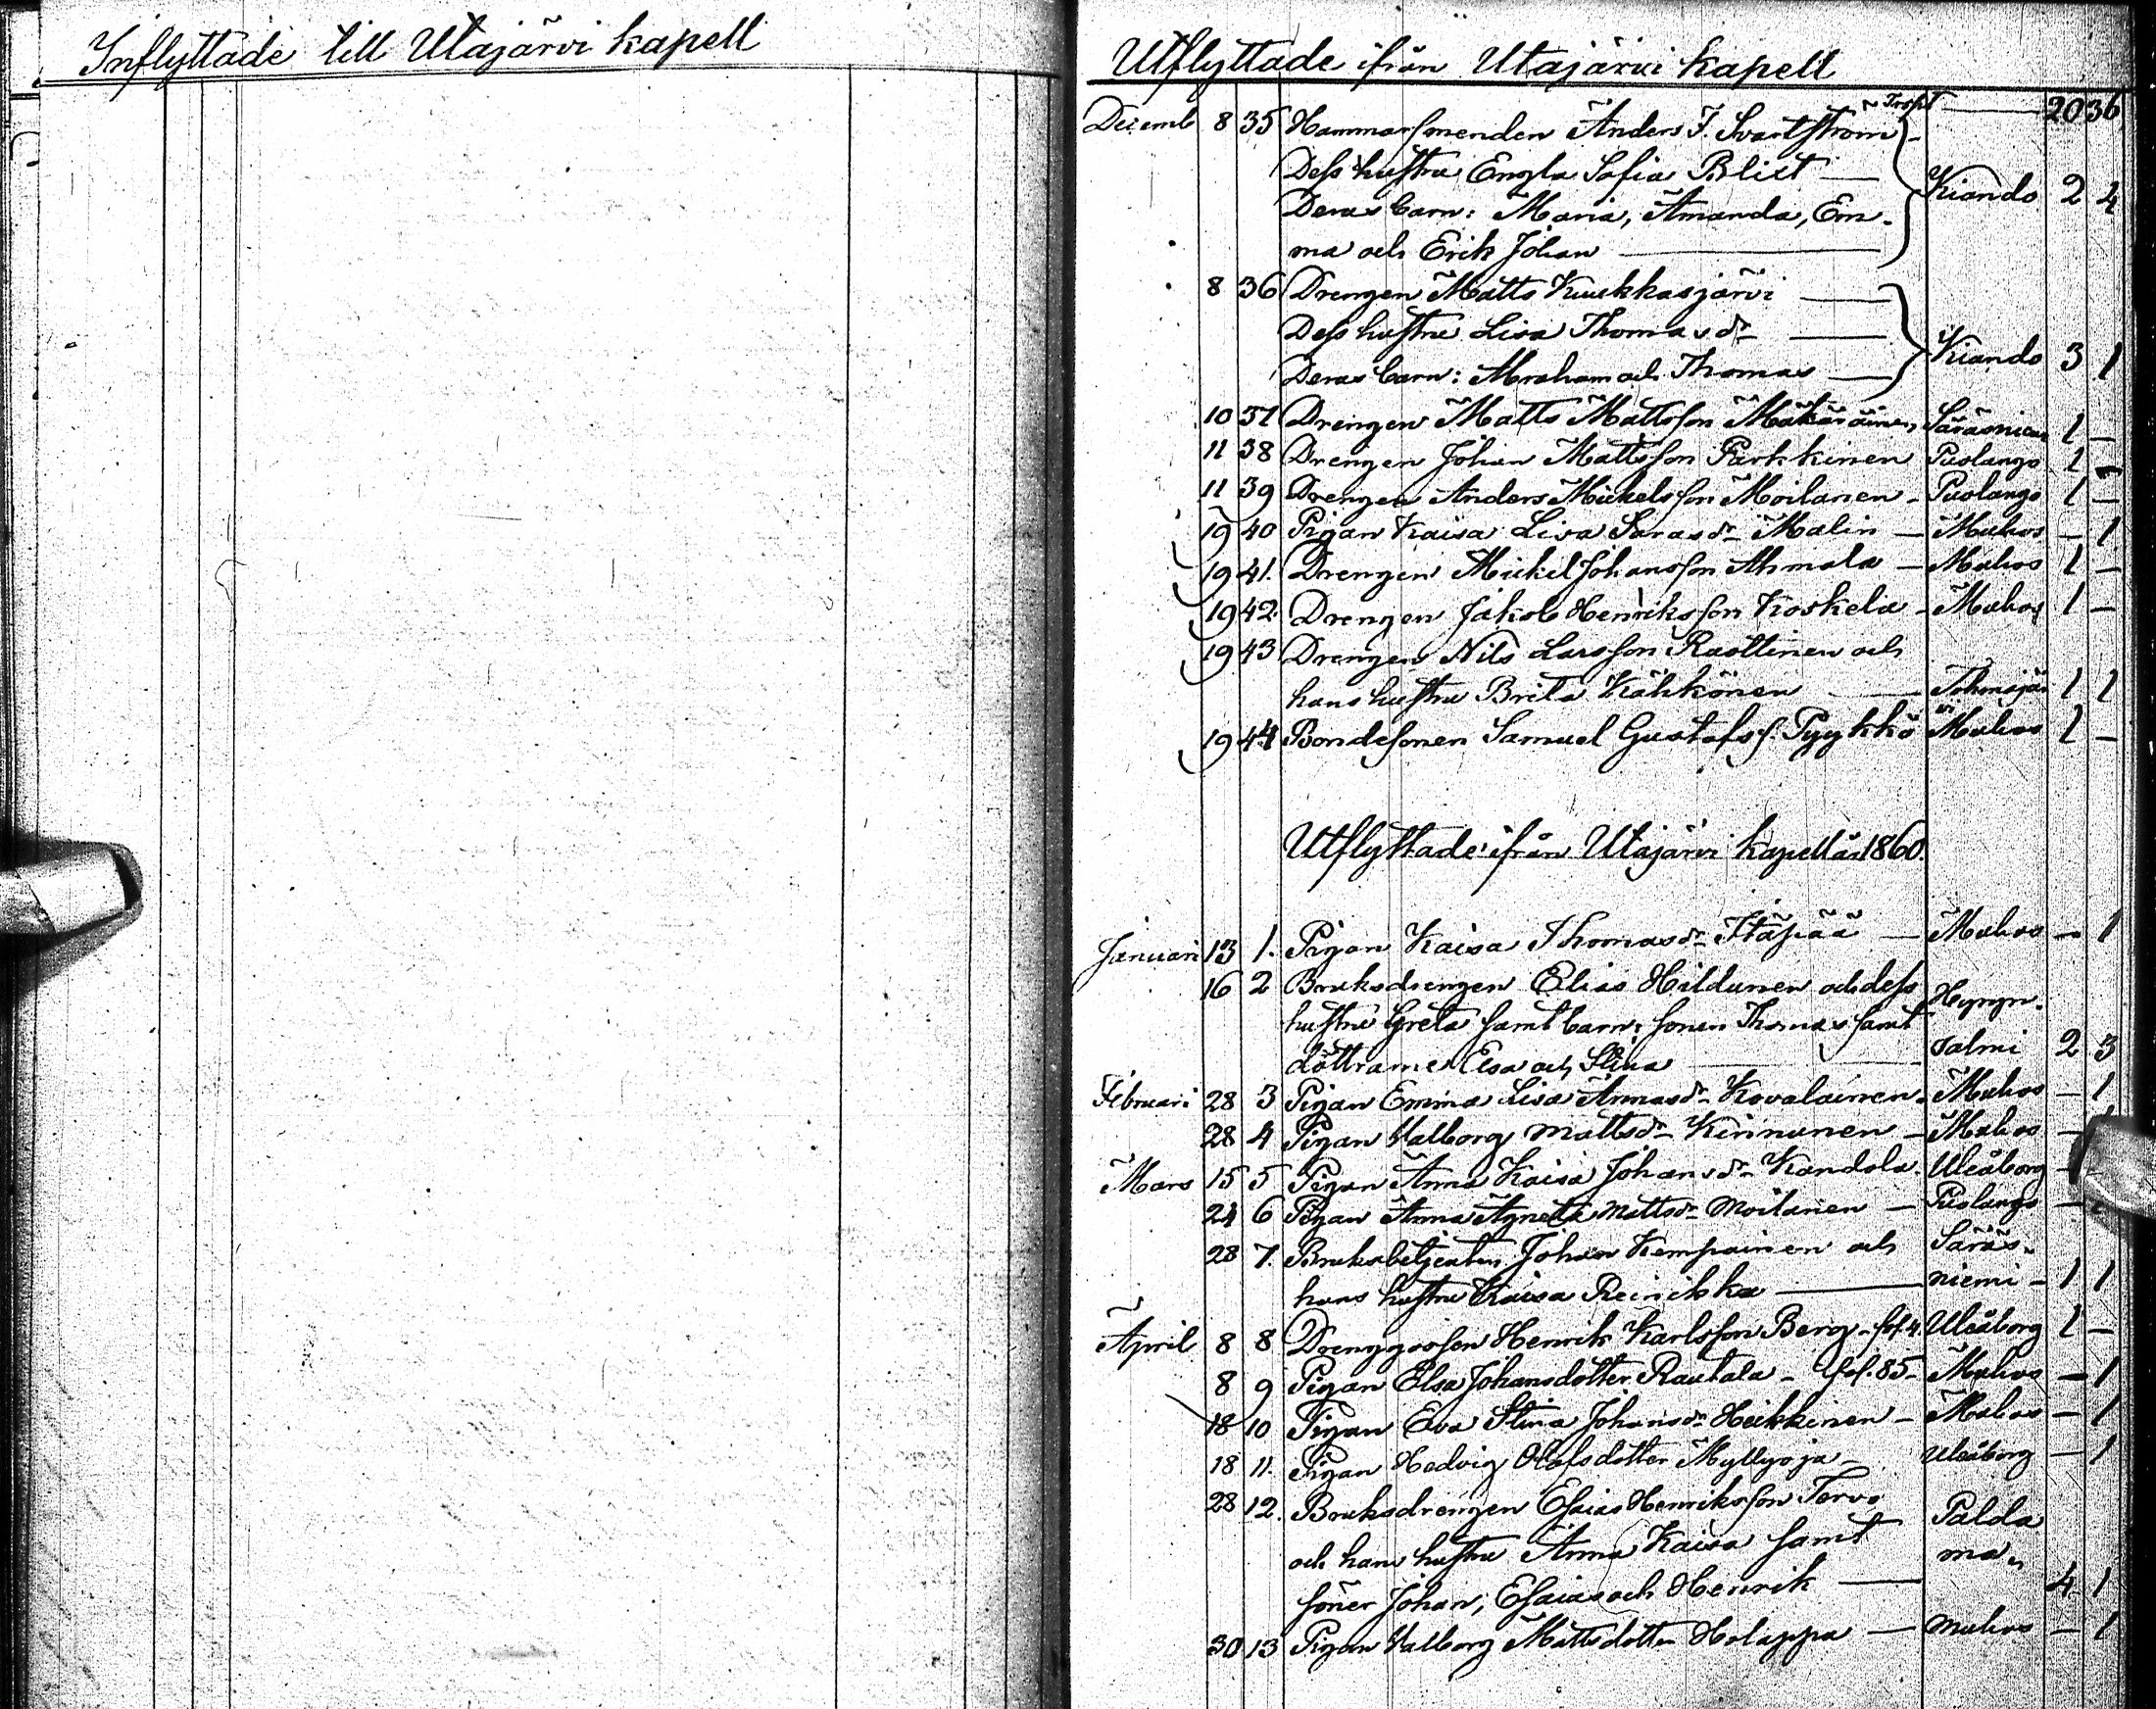 Inflyttade till Utajärvi kapell
Utflyttade ifrån Utajärvi kapell
Trspt — 20 36
Decemb 8 35 Hammarsmeden Anders J. Svartström
Dess hustru Engla Sofia Blict
Deras barn: Maria, Amanda, Em- Kiando 2 4
ma och Erik Johan
8 36 Drengen Matts Kuukkasjärvi
Dess hustru Lisa Thomasdr
Deras barn: Abraham och Thomas Kiando 3 1
10 37 Drengen Matts Mattsson Mäkäräinen Säräsniemi 1 –
11 38 Drengen Johan Mattsson Parkkinen Puolango 1 –
11 39 Drengen Anders Mickelsson Moilanen – Puolango 1 –
19 40 Pigan Kaisa Lisa Sarasdr Malin – Muhos – 1
19 41. Drengen Mickel Johansson Ahmala – Muhos 1 –
19 42 Drengen Jakob Henriksson Koskela – Muhos 1 –
19 43 Drengen Nils Larsson Ruottinen och
hans hustru Brita Kähkönen — Tohmajär 1 1
vi
19 44 Bondesonen Samuel Gustafs s. Pyykkö Muhos 1 –
Utflyttade ifrån Utajärvi kapell år 1860.
Januari 13 1. Pigan Kaisa Thomasdr Itäpää — Muhos – 1
16 2 Bruksdrengen Elias Hildunen och dess
hustru Greta samt barn: sonen Thomas samt Hyryn-
döttrarne Elsa och Stina — salmi 2 3
Februari 28 3 Pigan Emma Lisa Annasdr Kovalainen. Muhos – 1
28 4 Pigan Valborg Mattsdr Kinnunen – Muhos –
Mars 15 5 Pigan Anna Kaisa Johansdr Kandola. Uleåborg –
24 6 Pigan Anna Agneta Mattsdr Moilanen – Puolango –
28 7. Bruksbetjenten Johan Kempainen och Säräs-
hans hustru Kaisa Reinikka — niemi – 1 1
April 8 8 Drenggossen Henrik Karlsson Berg – fol. 4 Uleåborg 1 –
8 9 Pigan Elsa Johansdotter Rautala – fol. 85 – Muhos – 1
18 10 Pigan Eva Stina Johansdr Heikkinen – Muhos – 1
18 11. Pigan Hedvig Olofsdotter Myllyoja – Uleåborg – 1
28 12. Bruksdrengen Esaias Henriksson Tervo Palda
och hans hustru Anna Kaisa samt ma
söner Johan, Esaias och Henrik — 4 1
30 13 Pigan Valborg Mattsdotter Holappa — Muhos – 1